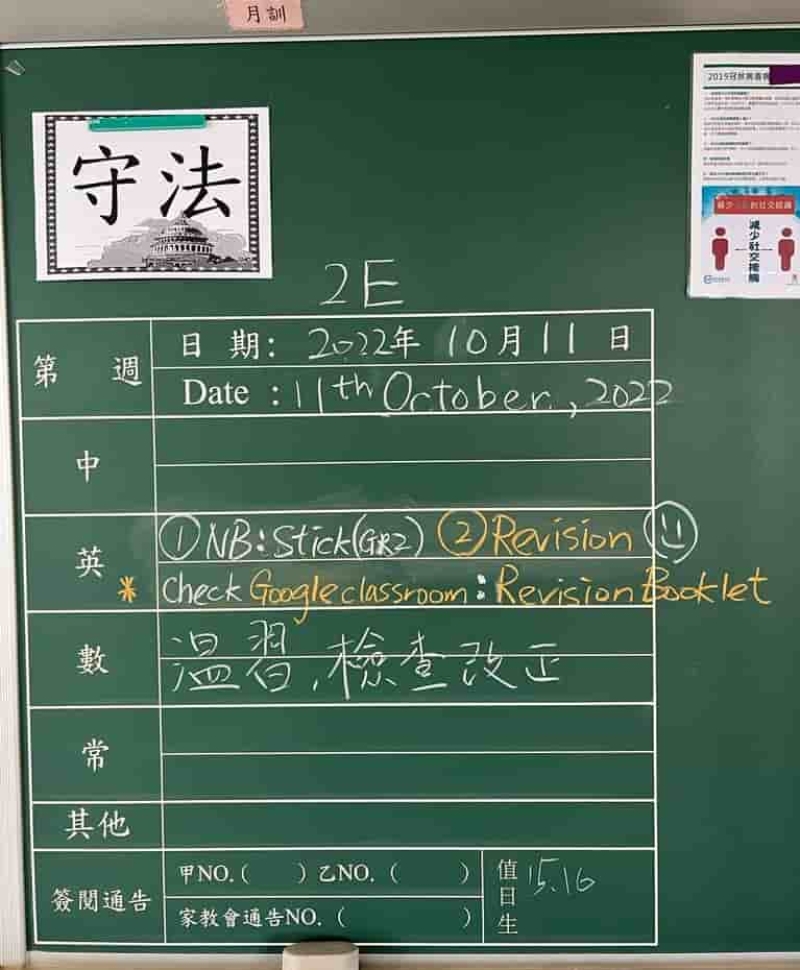 月訓
2019冠狀病毒病
守法
減少社交接觸
2E
第 週
日 期: 2022年 10月 11 日
Date : 11th October, 2022
中
英
①NB:Stick(GR2) ②Revision
* Check Google classroom: Revision Booklet
數
溫習,檢查改正
常
其他
簽閱通告
甲NO.( ) 乙NO.( )
家教會通告NO.( )
值日生 15.16